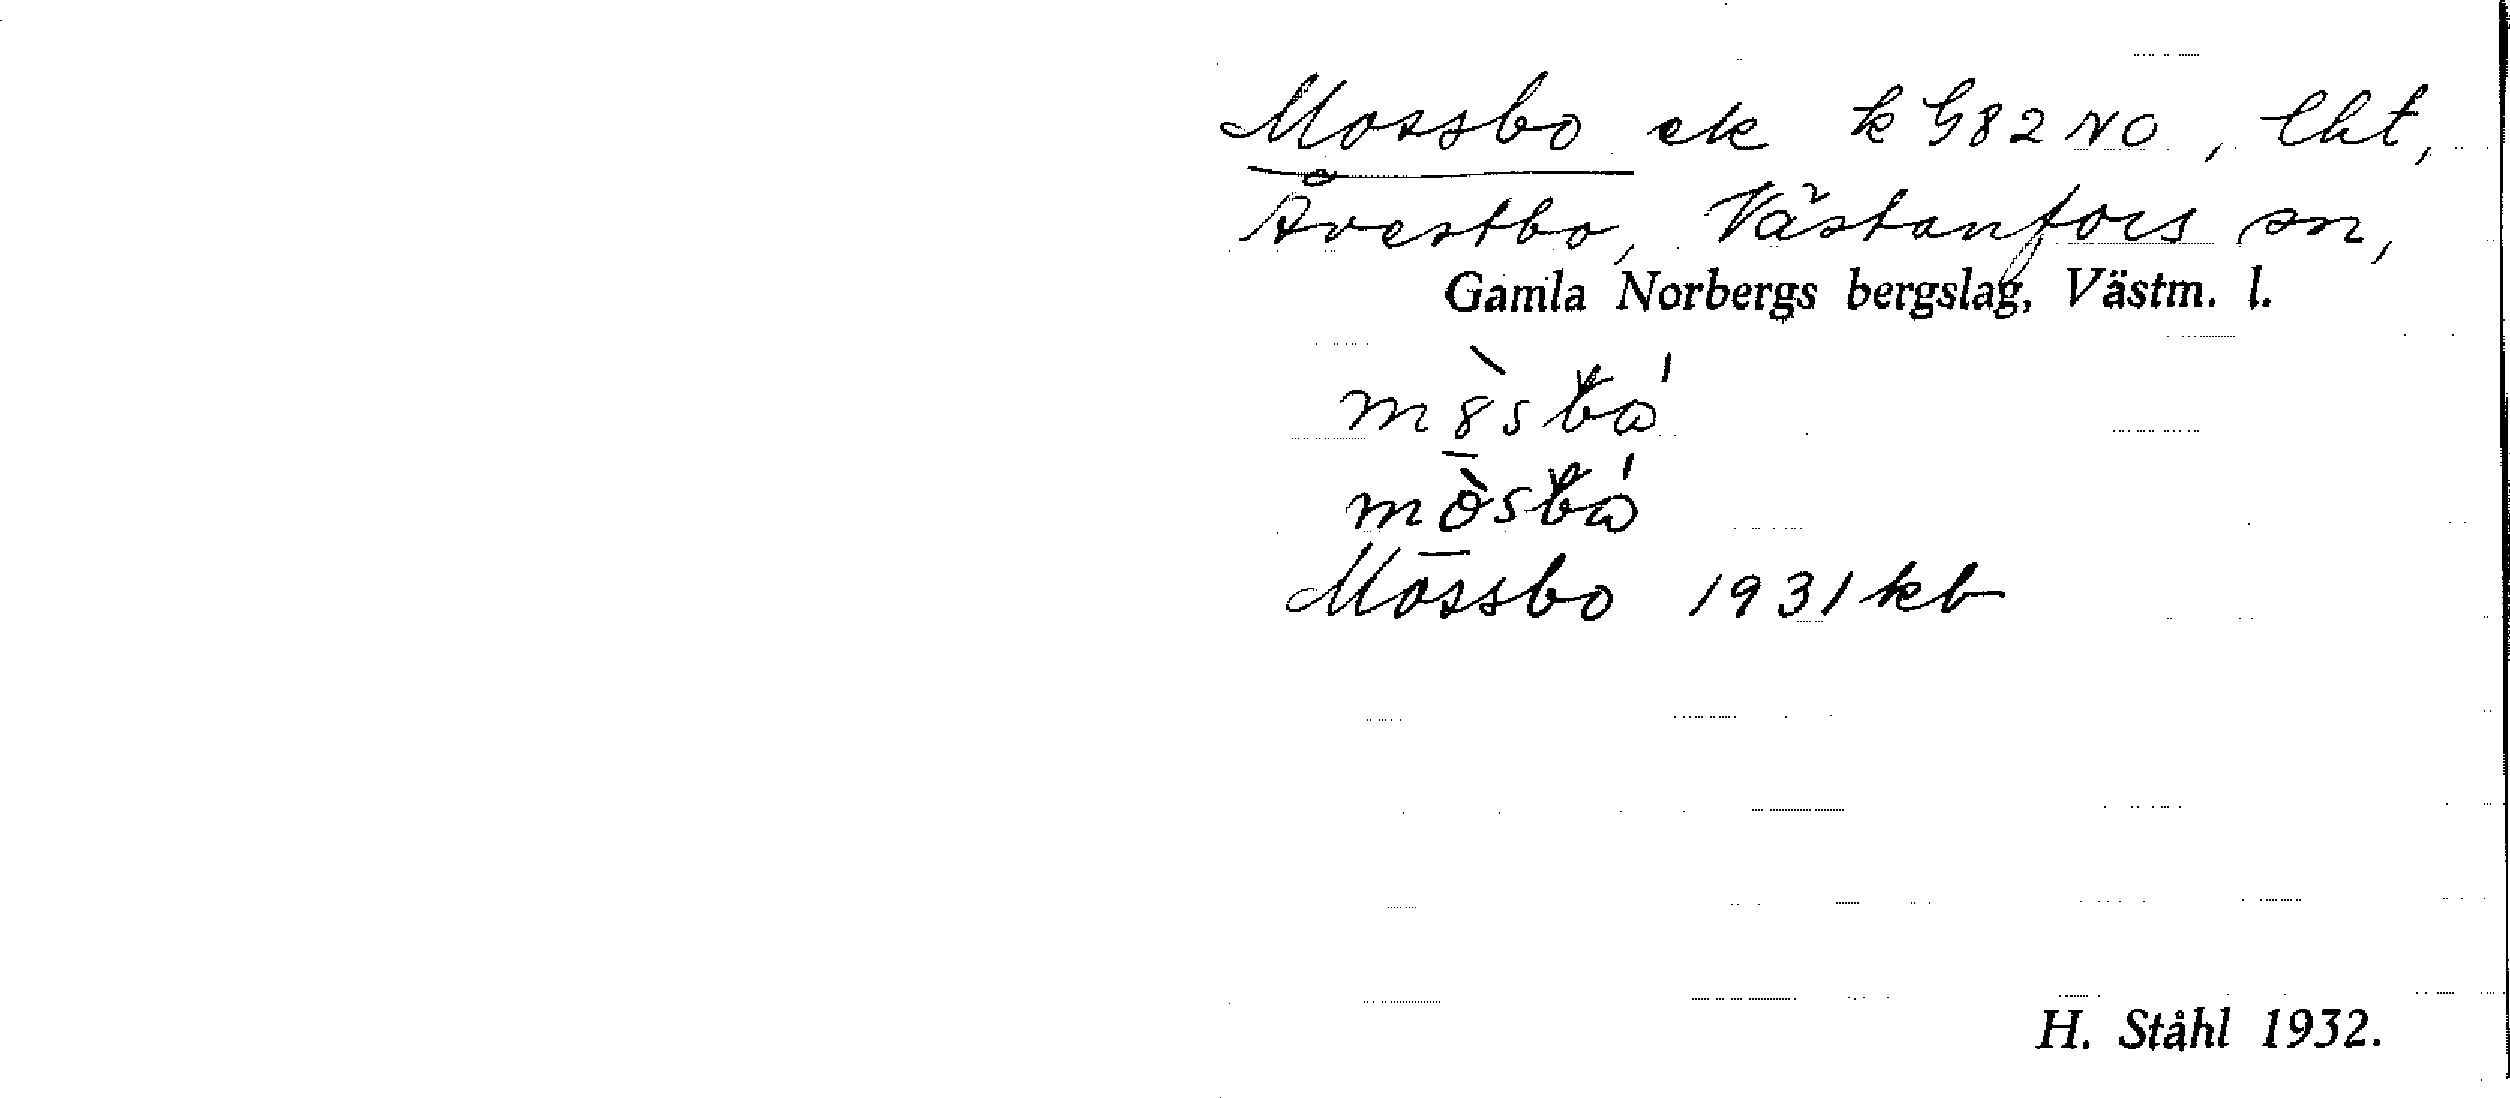 Mossbo ek k G82NO, lht,
Åvestbo, Västanfors sn,
Gamla Norbergs bergslag, Västm. l.
Mossbo 1931 kb
H. Ståhl 1932.